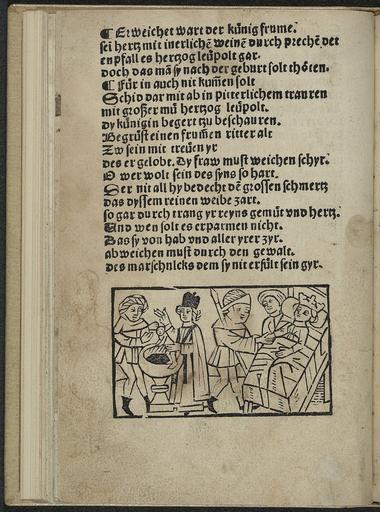 ¶ Erweichet wart der künig frume.
sei hertz mit inerlichē weinē durch prechē det
en pfall es hertzog leüpolt gar.
doch das mā sy nach der geburt solt thöten.
¶ Für in auch nit kumēn solt
Schid dar mit ab in pitterlichem trauren
mit großer mü hertzog leüpolt.
dy künigin begert tzu beschauren.
Begrüst einen frumēn ritter alt
Zw sein mit treüen yr
des er gelobt. Dy fraw must weichen schyr.
O wer wolt sein des syns so hart.
Der nit all hy bedecht dē grossen schmertz
das dyssem reinen weibe zart.
so gar durch trang yr reyns gemüt vnd hertz.
Vnd wen solt es erparmen nicht.
Das sy von hab vnd aller yrer zyr.
abweichen must durch den gewalt.
des marschnlcks dem sy nit erfült sein gyr.